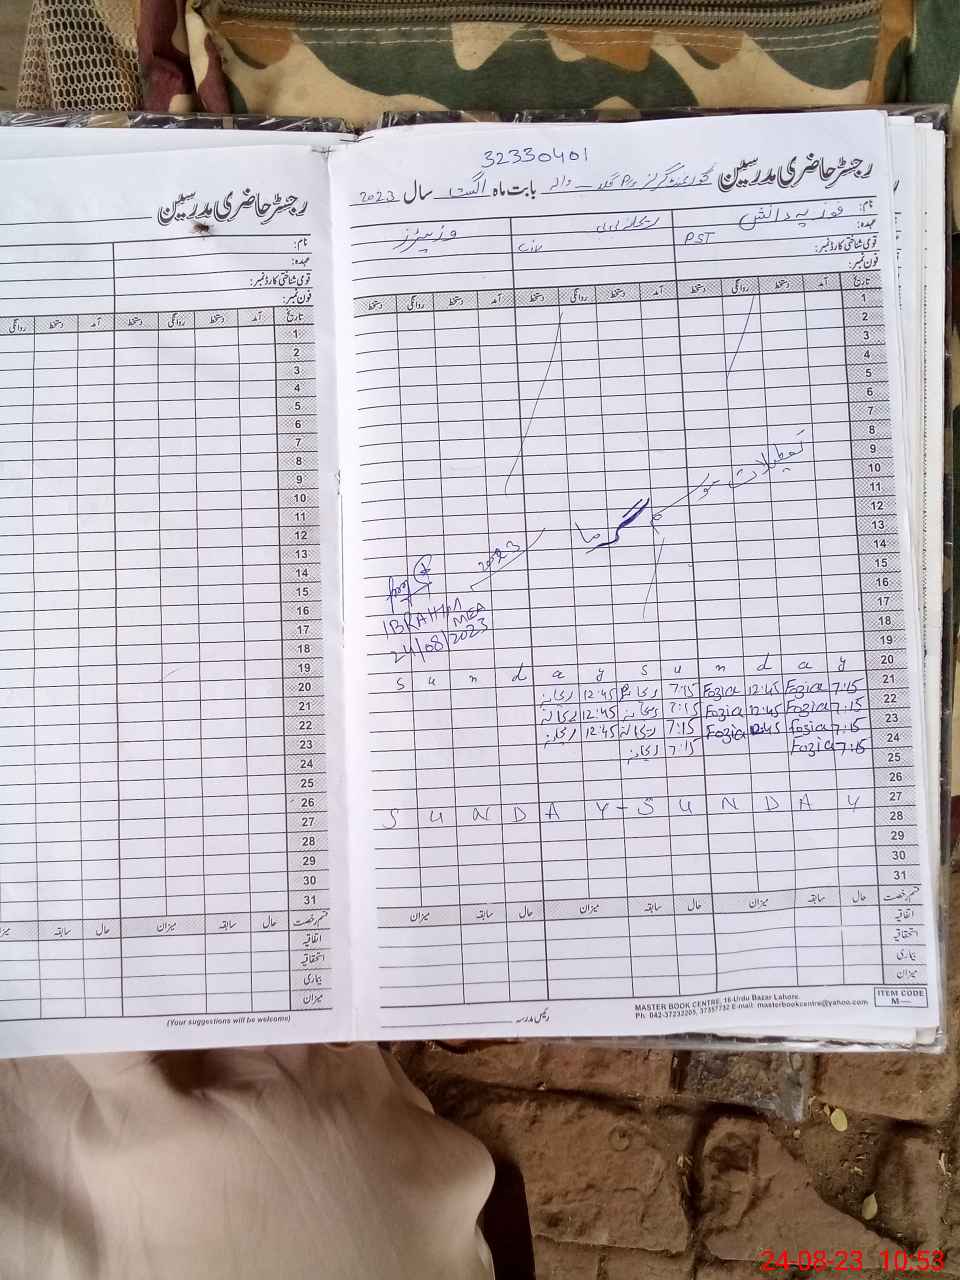 32330401
رجسٹر حاضری مدرسین گورنمنٹ گرلز P/S بابت ماہ اگست سال 2023
نام: فوزیہ دانش
عہدہ: PST وزیٹرز
قومی شناختی کارڈ نمبر:
فون نمبر:
تاریخ آمد دستخط روانگی دستخط آمد دستخط روانگی دستخط آمد دستخط روانگی دستخط
1
2
3
4
5
6
7
8
9
10
11
12
13
14
15
16
17
18
19
20 S u n d a y S u n d a y
21 7:15 Fozia 12:45 Fozia 7:15 ریحانہ 12:45 ریحانہ
22 7:15 Fozia 12:45 Fozia 7:15 ریحانہ 12:45 ریحانہ
23 7:15 Fozia 12:45 Fozia 7:15 ریحانہ 12:45 ریحانہ
24 7:15 Fozia 7:15 ریحانہ
25
26
27 S U N D A Y - S U N D A Y
28
29
30
31
تعطیلات موسم گرما
2023
IBRAHIM
MEA
24/08/2023
قسم رخصت حال سابقہ میزان حال سابقہ میزان حال سابقہ میزان
اتفاقیہ
استحقاقیہ
بیماری
میزان
رئیس مدرسہ
MASTER BOOK CENTRE, 16-Urdu Bazar Lahore.
Ph: 042-37232205, 37357732 E-mail: masterbookcentre@yahoo.com
ITEM CODE
M—
رجسٹر حاضری مدرسین
نام:
عہدہ:
قومی شناختی کارڈ نمبر:
فون نمبر:
تاریخ آمد دستخط روانگی دستخط آمد دستخط روانگی
1
2
3
4
5
6
7
8
9
10
11
12
13
14
15
16
17
18
19
20
21
22
23
24
25
26
27
28
29
30
31
قسم رخصت حال سابقہ میزان حال سابقہ
اتفاقیہ
استحقاقیہ
بیماری
میزان
(Your suggestions will be welcome)
24-08-23 10:53